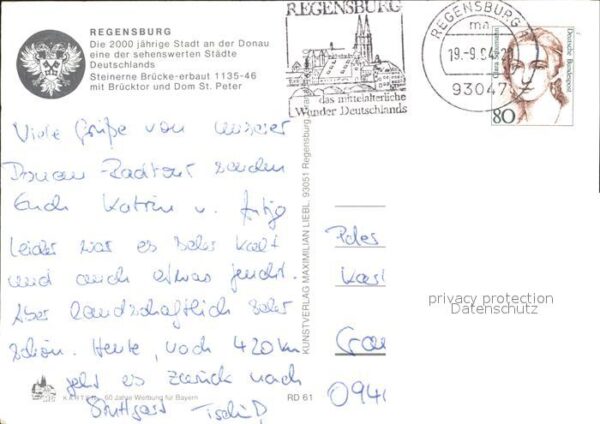 REGENSBURG
Die 2000 jährige Stadt an der Donau
eine der sehenswerten Städte
Deutschlands
Steinerne Brücke-erbaut 1135-46
mit Brücktor und Dom St. Peter
REGENSBURG
das mittelalterliche
Wunder Deutschlands
REGENSBURG 1
ma
19.-9.94
93047
Clara Schumann
Deutsche Bundespost
80
Viele Grüße von unserer
Donau-Radtour senden
Euch Katrin u.
Leider war es sehr kalt
und auch etwas feucht.
Aber landschaftlich sehr
schön. Heute, nach 420 km
geht es zurück nach
Stuttgart Tschüß
KUNSTVERLAG MAXIMILIAN LIEBL, 93051 Regensburg
privacy protection
Datenschutz
KARTEN 60 Jahre Werbung für Bayern
RD 61